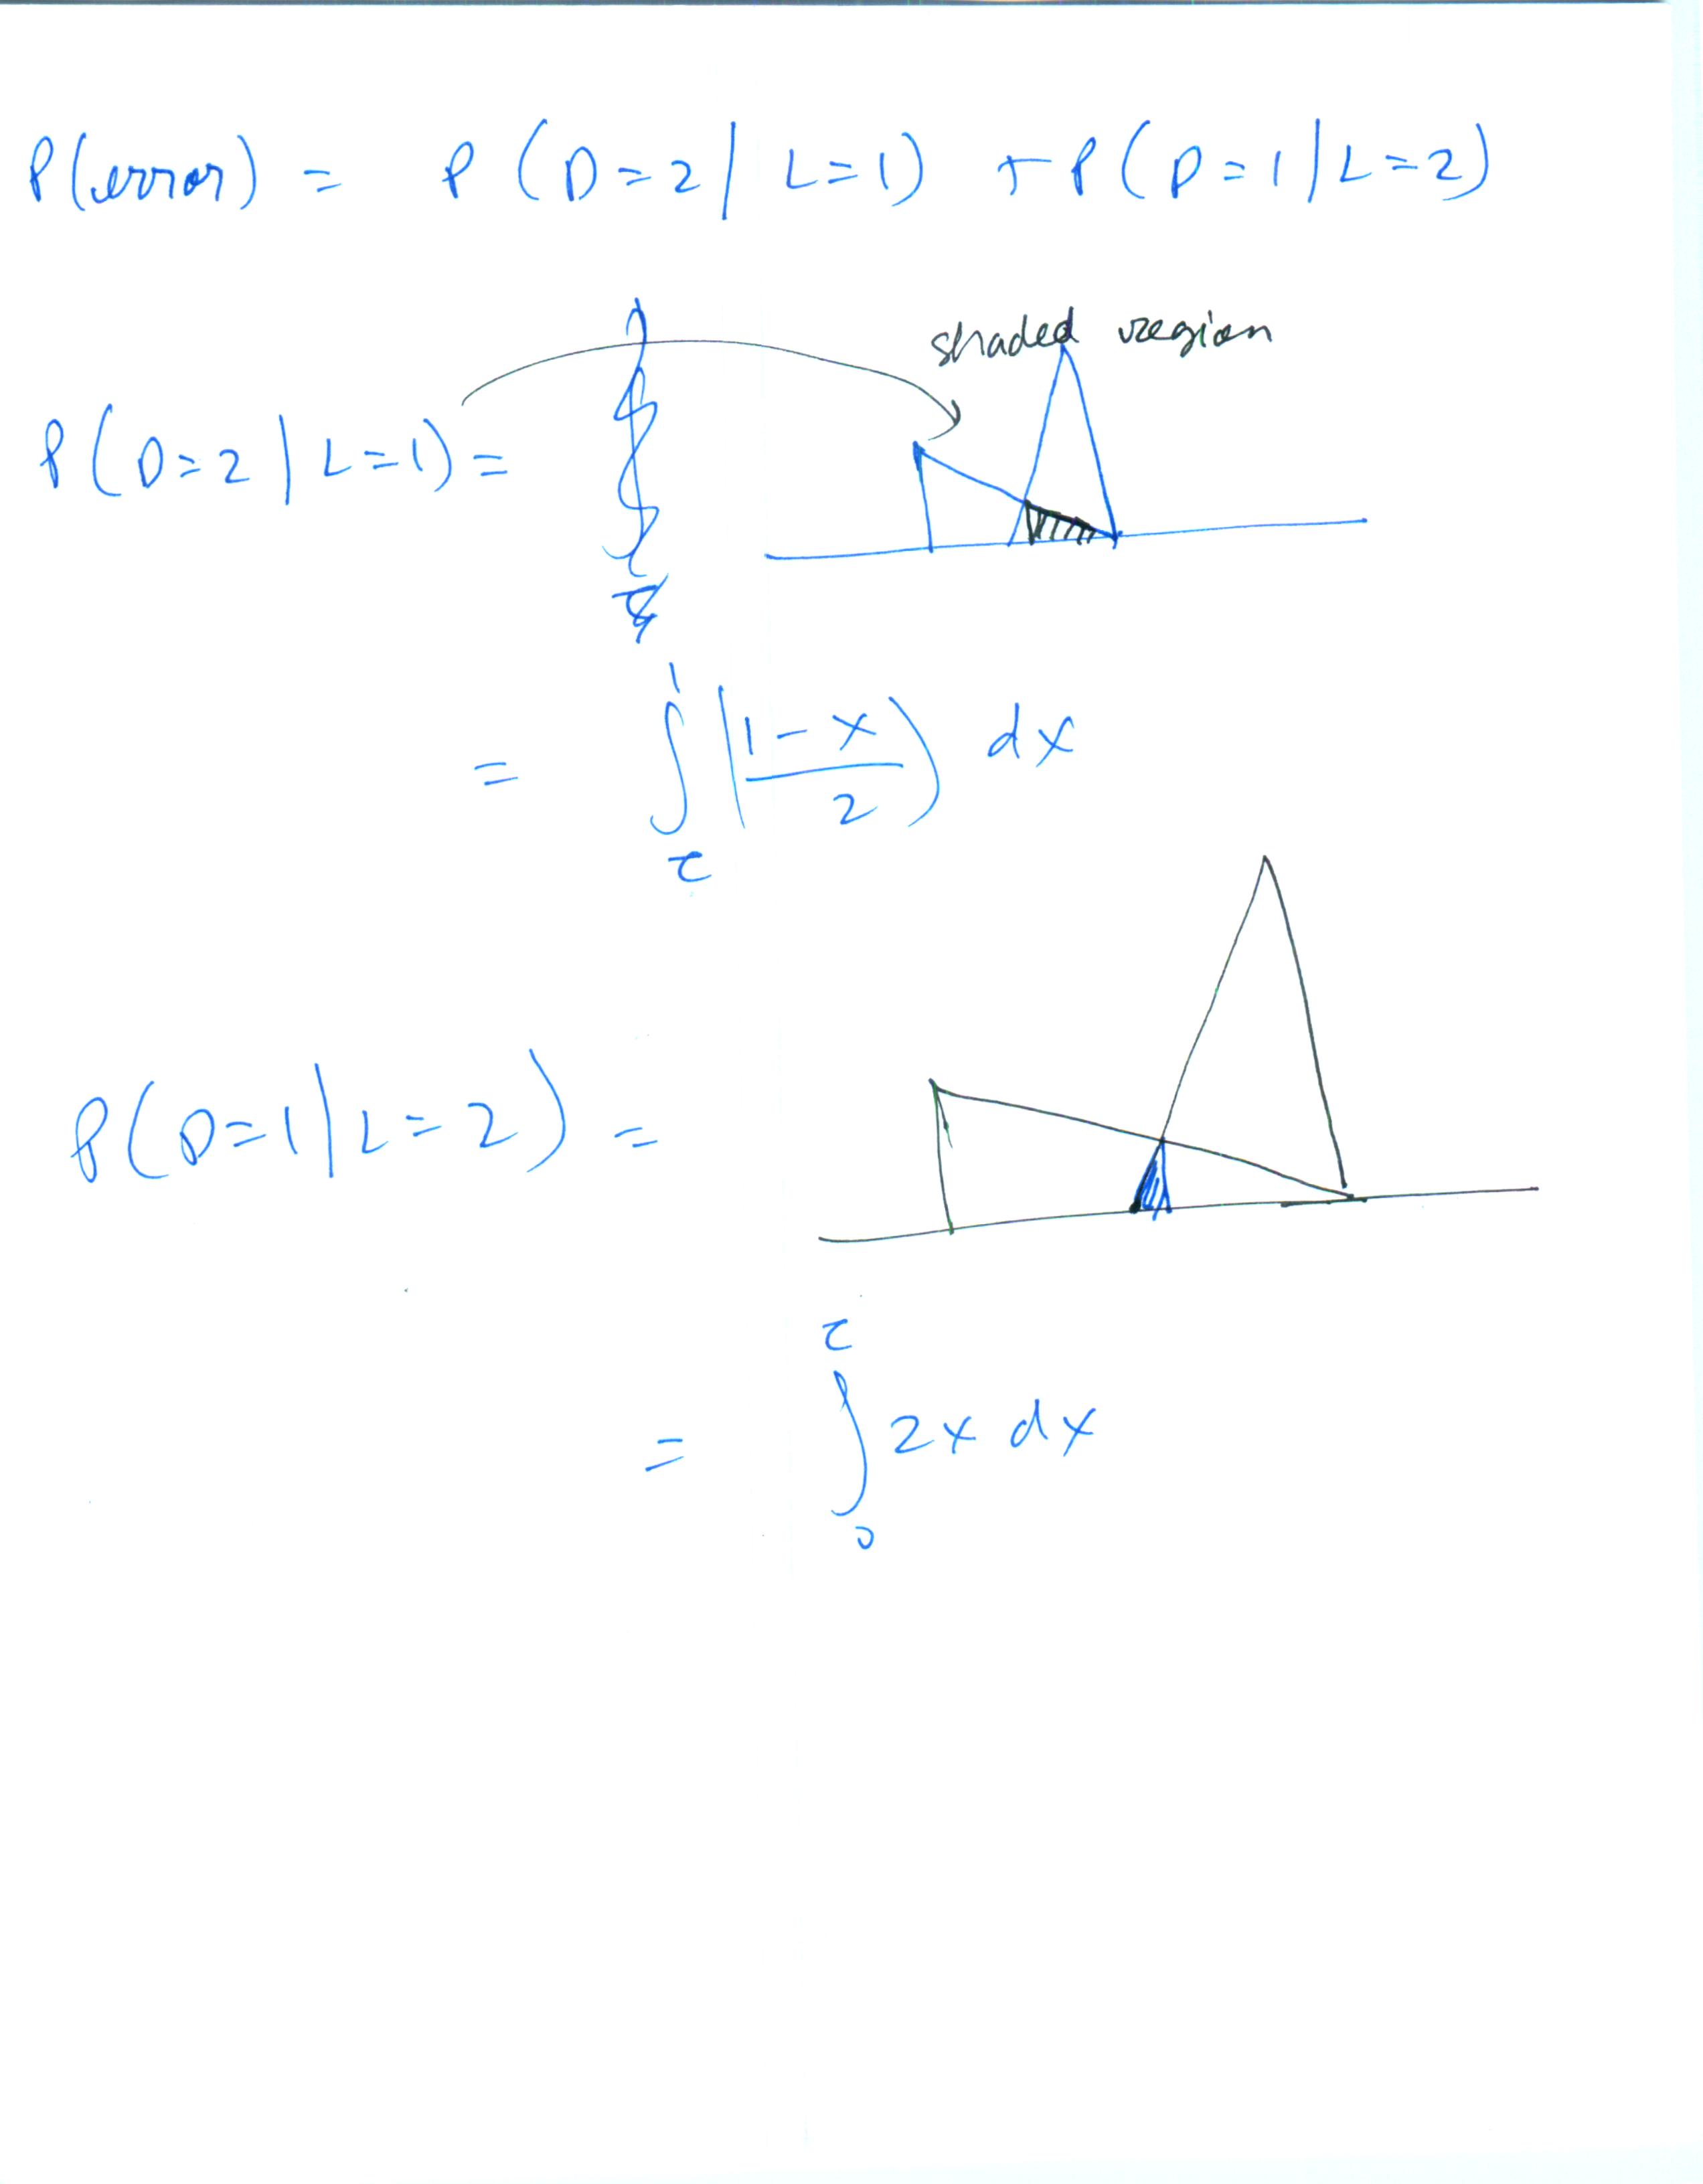 P(error) = P(D=2 | L=1) + P(D=1 | L=2)
shaded region
P(D=2 | L=1) =
= ∫_τ^1 ((1-x)/2) dx
P(D=1 | L=2) =
= ∫_0^τ 2x dx